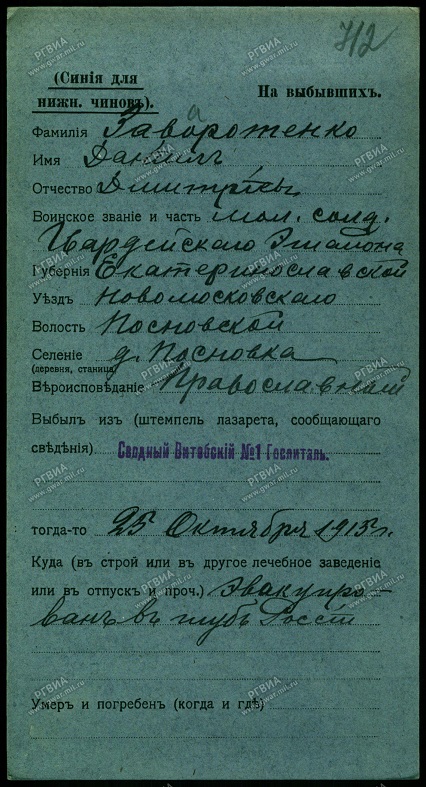 712
(Синія для
нижн. чиновъ).
На выбывшихъ.
Фамилія Заваротенко
Имя Даніилъ
Отчество Дмитріевъ
Воинское званіе и часть мол. солд.
Гвардейскаго Эшалона
Губернія Екатеринославской
Уѣздъ Новомосковскаго
Волость
Селеніе д.
(деревня, станица)
Вѣроисповѣданіе Православный
Выбылъ изъ (штемпель лазарета, сообщающаго
свѣдѣнія). Сводный Витебскій №1 Госпиталь.
тогда-то 25 Октября 1915 г.
Куда (въ строй или въ другое лечебное заведеніе
или въ отпускъ и проч.) Эвакуиро-
ванъ въ глубь Россіи
Умеръ и погребенъ (когда и гдѣ)
РГВИА
www.gwar.mil.ru